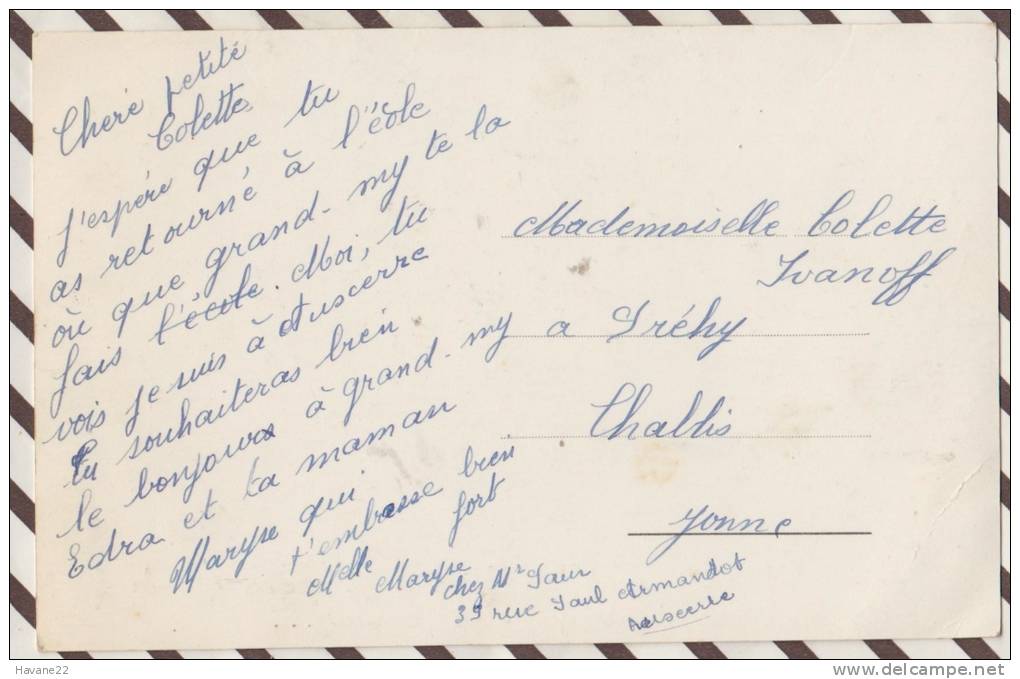 Chère petite
Colette
J'espère que tu
as retourné à l'école
où que grand-my te la
fais l'école. Moi, tu
vois je suis à Auscerre
Tu souhaiteras bien
le bonjours à grand-my
Edra et ta maman
Maryse qui
t'embrasse bien
fort
Melle Maryse
chez Mr
39 rue Paul Armandot
Auscerre
Mademoiselle Colette
Ivanoff
a Préhy
Chablis
Yonne
Havane22
delcampe.net